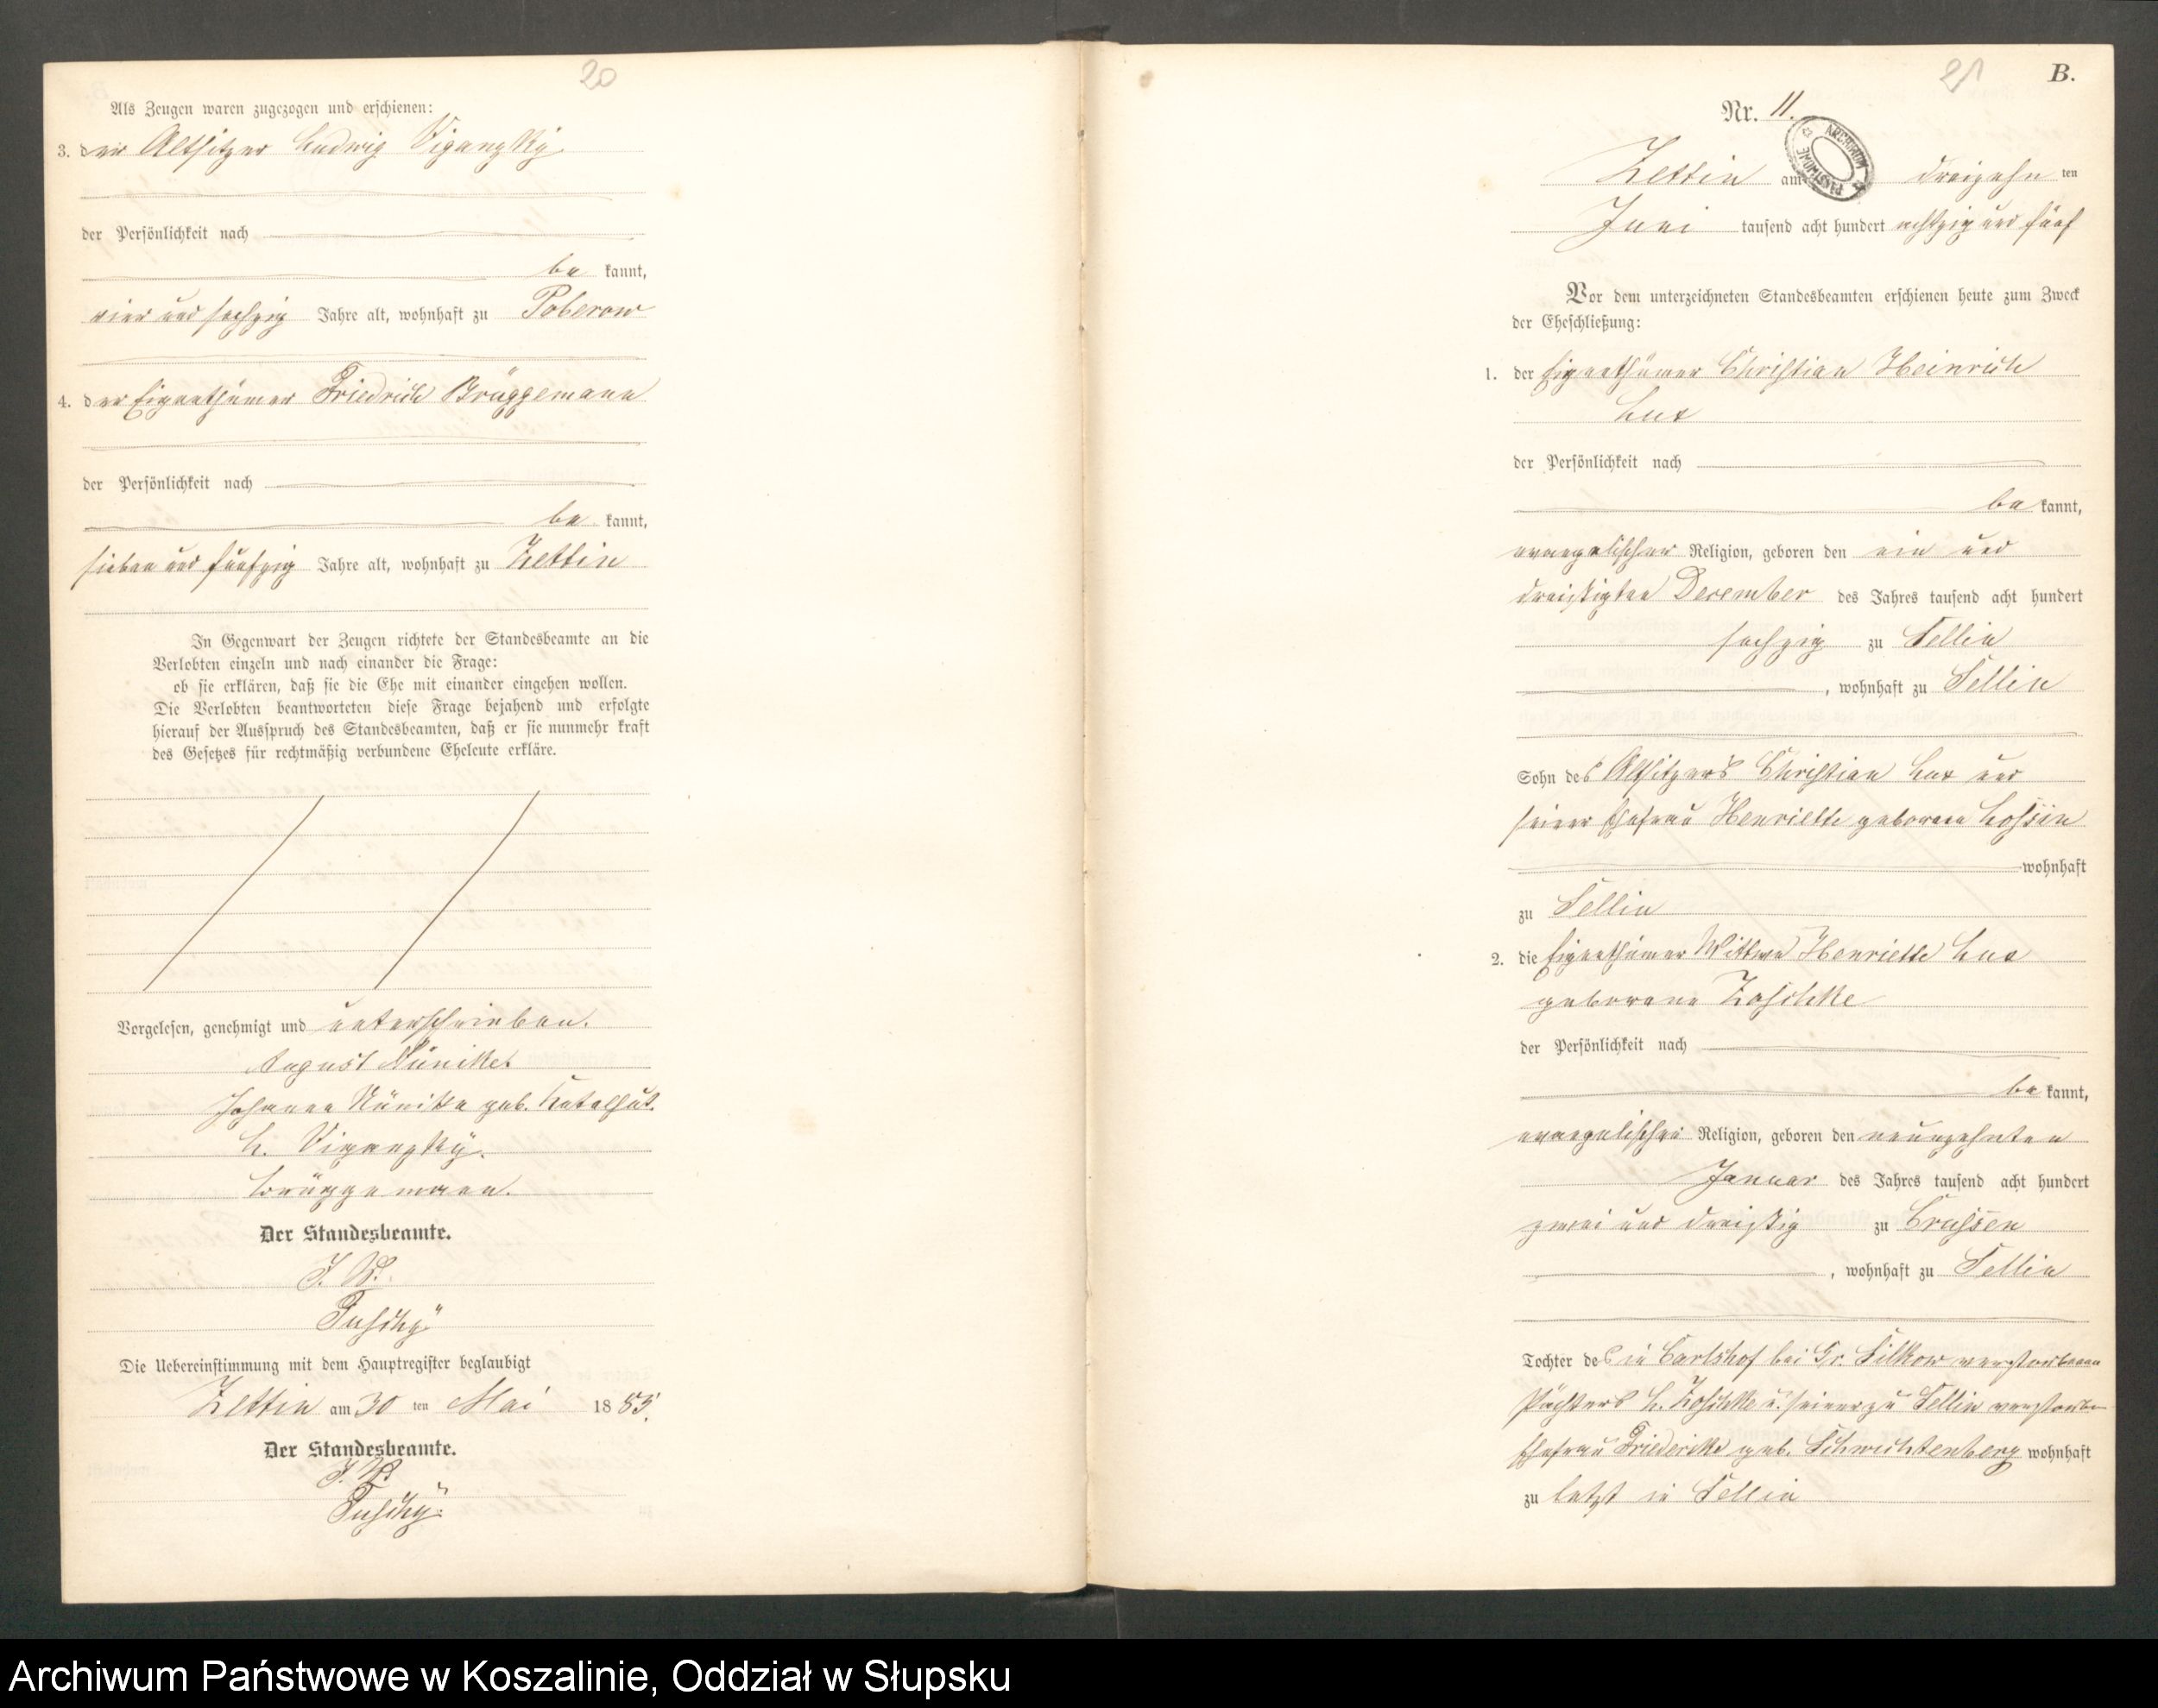 20
Als Zeugen waren zugezogen und erschienen:
3. der Altsitzer Ludwig Viganzky
der Persönlichkeit nach
be kannt,
vier und sechzig Jahre alt, wohnhaft zu Poberow
4. der Eigenthümer Friedrich Brüggemann
der Persönlichkeit nach
be kannt,
sieben und fünfzig Jahre alt, wohnhaft zu Zettin
In Gegenwart der Zeugen richtete der Standesbeamte an die
Verlobten einzeln und nach einander die Frage:
ob sie erklären, daß sie die Ehe mit einander eingehen wollen.
Die Verlobten beantworteten diese Frage bejahend und erfolgte
hierauf der Ausspruch des Standesbeamten, daß er sie nunmehr kraft
des Gesetzes für rechtmäßig verbundene Eheleute erkläre.
Vorgelesen, genehmigt und unterschrieben.
August Nünike.
Johanna Nünike geb.
L. Viganzky.
Brüggemann.
Der Standesbeamte.
I. V.
Die Uebereinstimmung mit dem Hauptregister beglaubigt
Zettin am 30 ten Mai 18 85.
Der Standesbeamte.
I. V.
21
B.
Nr. 11.
ARCHIWUM PAŃSTWOWE
Zettin am dreizehn ten
Juni tausend acht hundert achtzig und fünf
Vor dem unterzeichneten Standesbeamten erschienen heute zum Zweck
der Eheschließung:
1. der Eigenthümer Christian Heinrich
Lux
der Persönlichkeit nach
be kannt,
evangelischer Religion, geboren den ein und
dreißigten December des Jahres tausend acht hundert
sechzig zu Sellin
, wohnhaft zu Sellin
Sohn des Altsitzers Christian Lux und
seiner Ehefrau Henriette geborenen Lossin
wohnhaft
zu Sellin
2. die Eigenthümer Wittwe Henriette Lux
geborene Zoschke
der Persönlichkeit nach
be kannt,
evangelischer Religion, geboren den neunzehnten
Januar des Jahres tausend acht hundert
zwei und dreißig zu Crussen
, wohnhaft zu Sellin
Tochter des in Carlshof bei Gr. Silkow verstorbenen
Pächters L. Zoschke u. seiner zu Sellin verstorbn
Ehefrau Friederike geb. Schwichtenberg wohnhaft
zu letzt in Sellin
Archiwum Państwowe w Koszalinie, Oddział w Słupsku